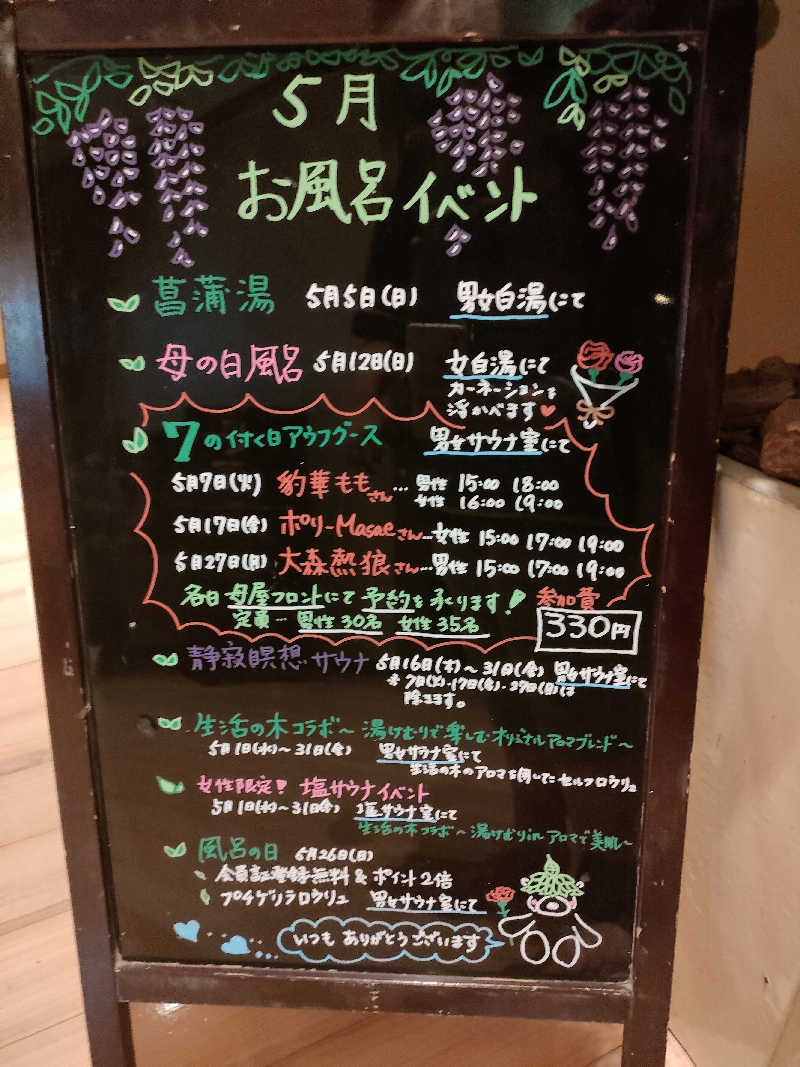 5月
お風呂イベント
菖蒲湯 5月5日(日) 男女白湯にて
母の日風呂 5月12日(日) 女白湯にて
カーネーションを
浮かべます
7の付く日アウフグース 男女サウナ室にて
5月7日(火) 豹華ももさん…男性 15:00 18:00
女性 16:00 19:00
5月17日(金) ポリーMasaeさん…女性 15:00 17:00 19:00
5月27日(月) 大森熱狼さん…男性 15:00 17:00 19:00
各日 母屋フロントにて 予約を承ります! 参加費
定員…男性30名 女性35名 330円
静寂瞑想サウナ 5月16日(木)~31日(金) 男女サウナ室にて
7日(火)・17日(金)・27日(月)は
除きます。
生活の木コラボ~湯けむりで楽しむオリジナルアロマブレンド~
5月1日(水)~31日(金) 男女サウナ室にて
生活の木のアロマを使用したセルフロウリュ
女性限定! 塩サウナイベント
5月1日(水)~31日(金) 塩サウナ室にて
生活の木コラボ~湯けむりinアロマで美肌~
風呂の日 5月26日(日)
会員証登録無料&ポイント2倍
プチゲリラロウリュ 男女サウナ室にて
いつも ありがとうございます